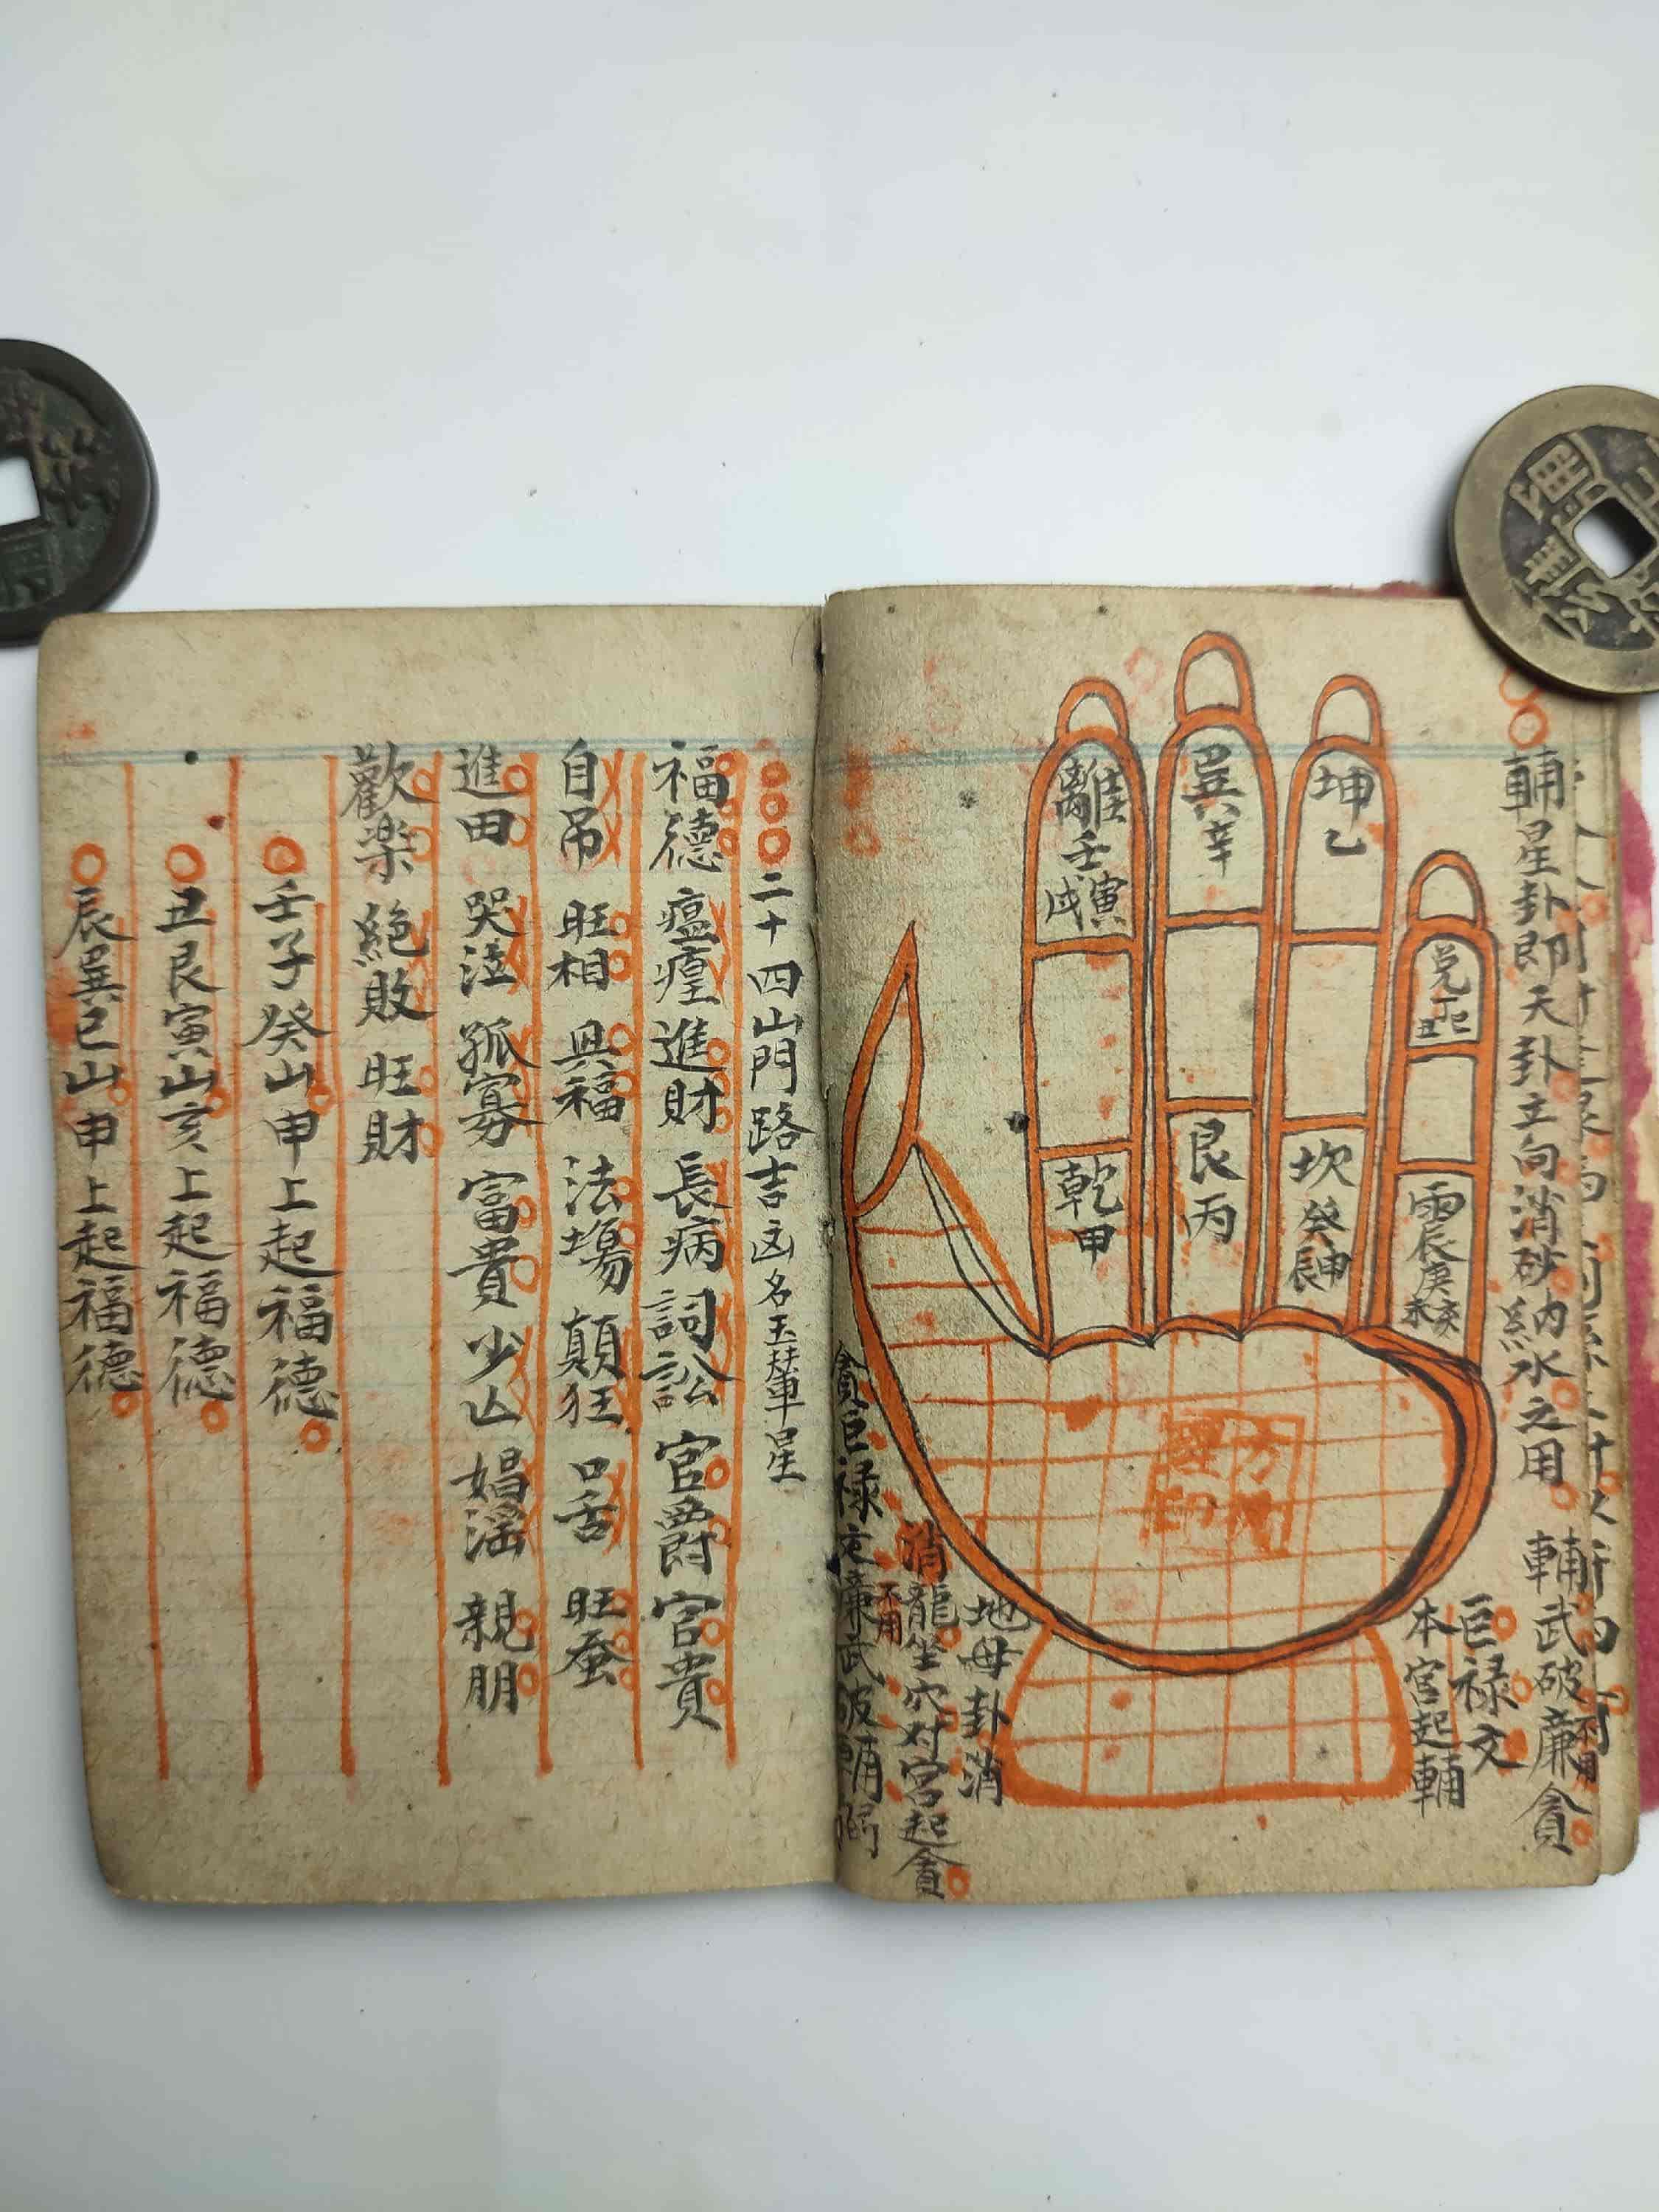 輔星卦即天卦立向消砂納水之用
輔武破廉貪
不用
巨禄文
本宮起輔
坤乙
巽辛
離壬寅戌
兌丁巳丑
乾甲
艮丙
坎癸申辰
震庚亥未
地母卦消
消龍坐穴对宮起貪
不用
貪巨禄文廉武破輔弼
二十四山門路吉凶名玉輦星
福德 瘟瘟 進財 長病 詞訟 官爵 官貴
自吊 旺相 具福 法場 顛狂 口舌 旺蚕
進田 哭泣 孤寡 富貴 少亾 娼淫 親朋
歡楽 絕敗 旺財
壬子癸山申上起福德
丑艮寅山亥上起福德
辰巽巳山申上起福德